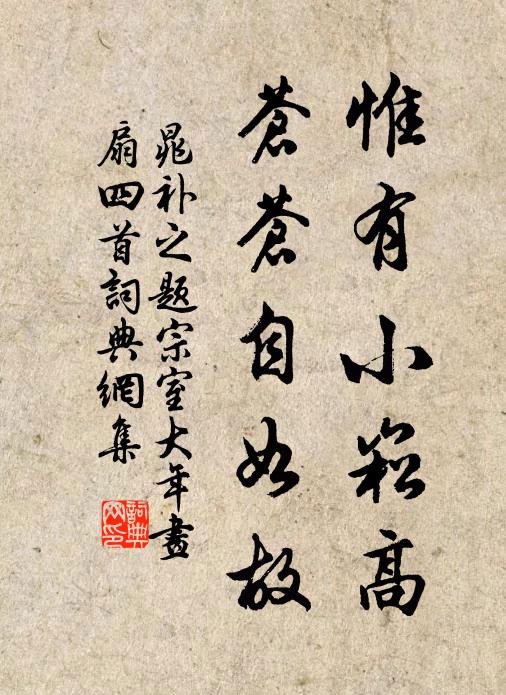 惟有小崧高
蒼蒼自如故
晁补之题宗室大年畫
扇四首詞典網集
詞典
网印